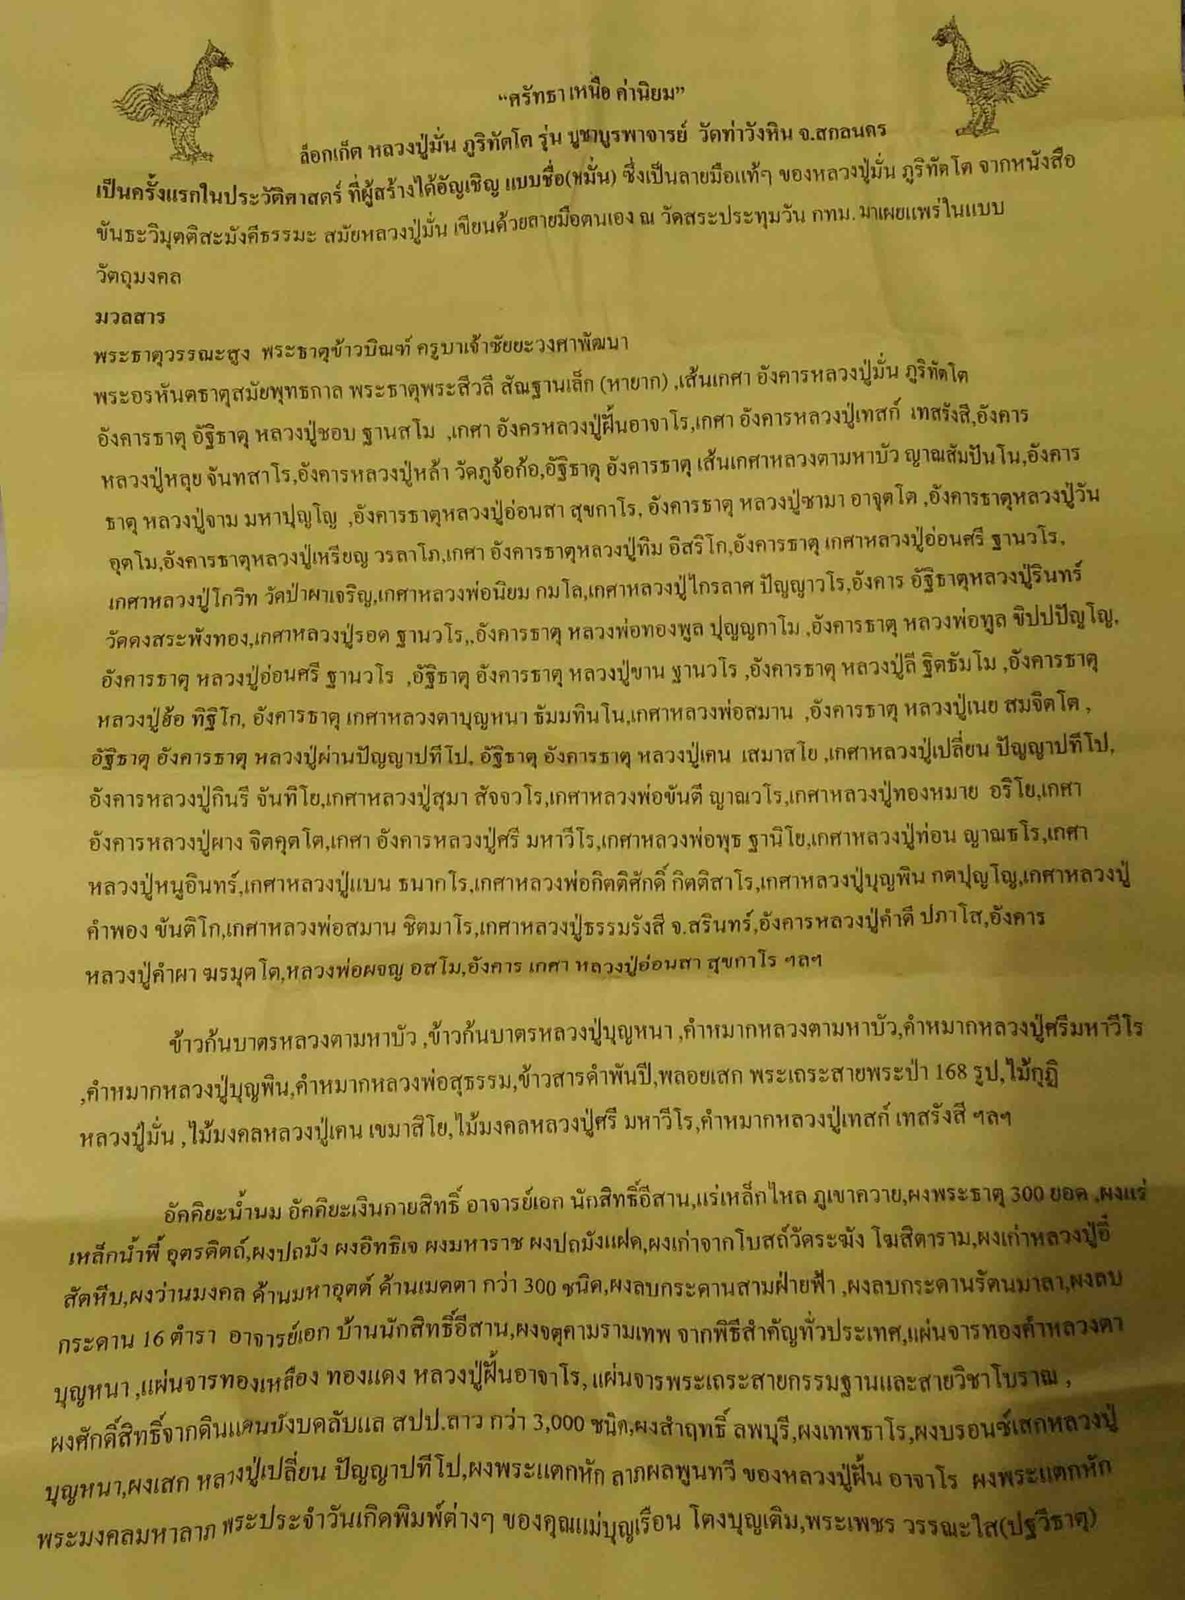 “ศรัทธา เหนือ ค่านิยม”
ล็อกเก็ต หลวงปู่มั่น ภูริทัตโต รุ่น บูชาบูรพาจารย์ วัดท่าวังหิน จ.สกลนคร
เป็นครั้งแรกในประวัติศาสตร์ ที่ผู้สร้างได้อัญเชิญ แบบชื่อ(หมั่น) ซึ่งเป็นลายมือแท้ๆ ของหลวงปู่มั่น ภูริทัตโต จากหนังสือ
ขันธะวิมุตติสะมังคีธรรมะ สมัยหลวงปู่มั่น เขียนด้วยลายมือตนเอง ณ วัดสระประทุมวัน กทม. มาเผยแพร่ในแบบ
วัตถุมงคล
มวลสาร
พระธาตุวรรณะสูง พระธาตุข้าวบิณฑ์ ครูบาเจ้าชัยยะวงศาพัฒนา
พระอรหันตธาตุสมัยพุทธกาล พระธาตุพระสีวลี สัณฐานเล็ก (หายาก) ,เส้นเกศา อังคารหลวงปู่มั่น ภูริทัตโต
อังคารธาตุ อัฐิธาตุ หลวงปู่ชอบ ฐานสโม ,เกศา อังครหลวงปู่ฝั้นอาจาโร,เกศา อังคารหลวงปู่เทสก์ เทสรังสี,อังคาร
หลวงปู่หลุย จันทสาโร,อังคารหลวงปู่หล้า วัดภูจ้อก้อ,อัฐิธาตุ อังคารธาตุ เส้นเกศาหลวงตามหาบัว ญาณสัมปันโน,อังคาร
ธาตุ หลวงปู่จาม มหาปุญโญ ,อังคารธาตุหลวงปู่อ่อนสา สุขกาโร, อังคารธาตุ หลวงปู่ซามา อาจุตโต ,อังคารธาตุหลวงปู่วัน
อุตโม,อังคารธาตุหลวงปู่เหรียญ วรลาโภ,เกศา อังคารธาตุหลวงปู่ทิม อิสริโก,อังคารธาตุ เกศาหลวงปู่อ่อนศรี ฐานวโร,
เกศาหลวงปู่โกวิท วัดป่าผาเจริญ,เกศาหลวงพ่อนิยม กมโล,เกศาหลวงปู่ไกรลาศ ปัญญาวโร,อังคาร อัฐิธาตุหลวงปู่รินทร์
วัดดงสระพังทอง,เกศาหลวงปู่รอด ฐานวโร,,อังคารธาตุ หลวงพ่อทองพูล ปุญญกาโม ,อังคารธาตุ หลวงพ่อทูล ขิปปปัญโญ,
อังคารธาตุ หลวงปู่อ่อนศรี ฐานวโร ,อัฐิธาตุ อังคารธาตุ หลวงปู่ขาน ฐานวโร ,อังคารธาตุ หลวงปู่ลี ฐิตธัมโม ,อังคารธาตุ
หลวงปู่ฮ้อ ทิฐิโก, อังคารธาตุ เกศาหลวงตาบุญหนา ธัมมทินโน,เกศาหลวงพ่อสมาน ,อังคารธาตุ หลวงปู่เนย สมจิตโต ,
อัฐิธาตุ อังคารธาตุ หลวงปู่ผ่านปัญญาปทีโป, อัฐิธาตุ อังคารธาตุ หลวงปู่เคน เสมาสโย ,เกศาหลวงปู่เปลี่ยน ปัญญาปทีโป,
อังคารหลวงปู่กินรี จันทิโย,เกศาหลวงปู่สุมา สัจจวโร,เกศาหลวงพ่อขันตี ญาณวโร,เกศาหลวงปู่ทองหมาย อริโย,เกศา
อังคารหลวงปู่ผาง จิตคุตโต,เกศา อังคารหลวงปู่ศรี มหาวีโร,เกศาหลวงพ่อพุธ ฐานิโย,เกศาหลวงปู่ท่อน ญาณธโร,เกศา
หลวงปู่หนูอินทร์,เกศาหลวงปู่แบน ธนากโร,เกศาหลวงพ่อกิตติศักดิ์ กิตติสาโร,เกศาหลวงปู่บุญพิน กตปุญโญ,เกศาหลวงปู่
คำพอง ขันติโก,เกศาหลวงพ่อสมาน ชิตมาโร,เกศาหลวงปู่ธรรมรังสี จ.สรินทร์,อังคารหลวงปู่คำดี ปภาโส,อังคาร
หลวงปู่คำผา ฆรมุตโต,หลวงพ่อผจญ อสโม,อังคาร เกศา หลวงปู่อ่อนสา สุขกาโร ฯลฯ
ข้าวก้นบาตรหลวงตามหาบัว ,ข้าวก้นบาตรหลวงปู่บุญหนา ,คำหมากหลวงตามหาบัว,คำหมากหลวงปู่ศรีมหาวีโร
,คำหมากหลวงปู่บุญพิน,คำหมากหลวงพ่อสุธรรม,ข้าวสารดำพันปี,พลอยเสก พระเถระสายพระป่า 168 รูป,ไม้กุฏิ
หลวงปู่มั่น ,ไม้มงคลหลวงปู่เคน เขมาสิโย,ไม้มงคลหลวงปู่ศรี มหาวีโร,คำหมากหลวงปู่เทสก์ เทสรังสี ฯลฯ
อัคคิยะน้ำนม อัคคิยะเงินกายสิทธิ์ อาจารย์เอก นักสิทธิ์อีสาน,แร่เหล็กไหล ภูเขาควาย,ผงพระธาตุ 300 ยอด ,ผงแร่
เหล็กน้ำพี้ อุตรดิตถ์,ผงปถมัง ผงอิทธิเจ ผงมหาราช ผงปถมังแฝด,ผงเก่าจากโบสถ์วัดระฆัง โฆสิตาราม,ผงเก่าหลวงปู่อี๋
สัตหีบ,ผงว่านมงคล ด้านมหาอุตต์ ด้านเมตตา กว่า 300 ชนิด,ผงลบกระดานสามฝ่ายฟ้า ,ผงลบกระดานรัตนมาลา,ผงลบ
กระดาน 16 ตำรา อาจารย์เอก บ้านนักสิทธิ์อีสาน,ผงจตุคามรามเทพ จากพิธีสำคัญทั่วประเทศ,แผ่นจารทองคำหลวงตา
บุญหนา ,แผ่นจารทองเหลือง ทองแดง หลวงปู่ฝั้นอาจาโร, แผ่นจารพระเถระสายกรรมฐานและสายวิชาโบราณ ,
ผงศักดิ์สิทธิ์จากดินแดนบังบดลับแล สปป.ลาว กว่า 3,000 ชนิด,ผงสำฤทธิ์ ลพบุรี,ผงเทพธาโร,ผงบรอนซ์เสกหลวงปู่
บุญหนา,ผงเสก หลวงปู่เปลี่ยน ปัญญาปทีโป,ผงพระแตกหัก ลาภผลพูนทวี ของหลวงปู่ฝั้น อาจาโร ผงพระแตกหัก
พระมงคลมหาลาภ พระประจำวันเกิดพิมพ์ต่างๆ ของคุณแม่บุญเรือน โตงบุญเติม,พระเพชร วรรณะใส(ปฐวีธาตุ)